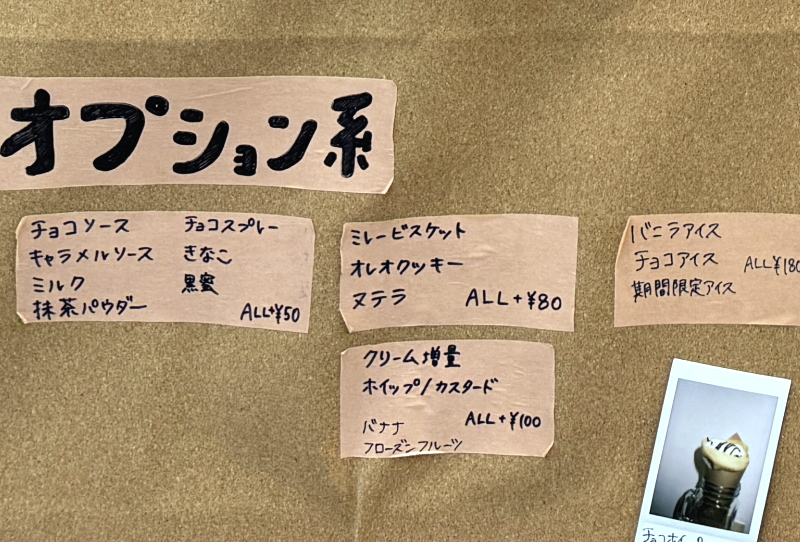 オプション系
チョコソース チョコスプレー
キャラメルソース きなこ
ミルク 黒蜜
抹茶パウダー ALL+¥50
ミレービスケット
オレオクッキー
ヌテラ ALL+¥80
バニラアイス
チョコアイス ALL¥180
期間限定アイス
クリーム増量
ホイップ/カスタード
バナナ ALL+¥100
フローズンフルーツ
チョコホイップ